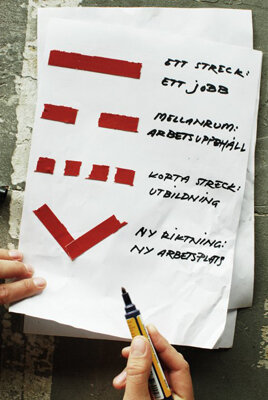 ETT STRECK:
ETT JOBB
MELLANRUM:
ARBETSUPPEHÅLL
KORTA STRECK:
UTBILDNING
NY RIKTNING:
NY ARBETSPLATS